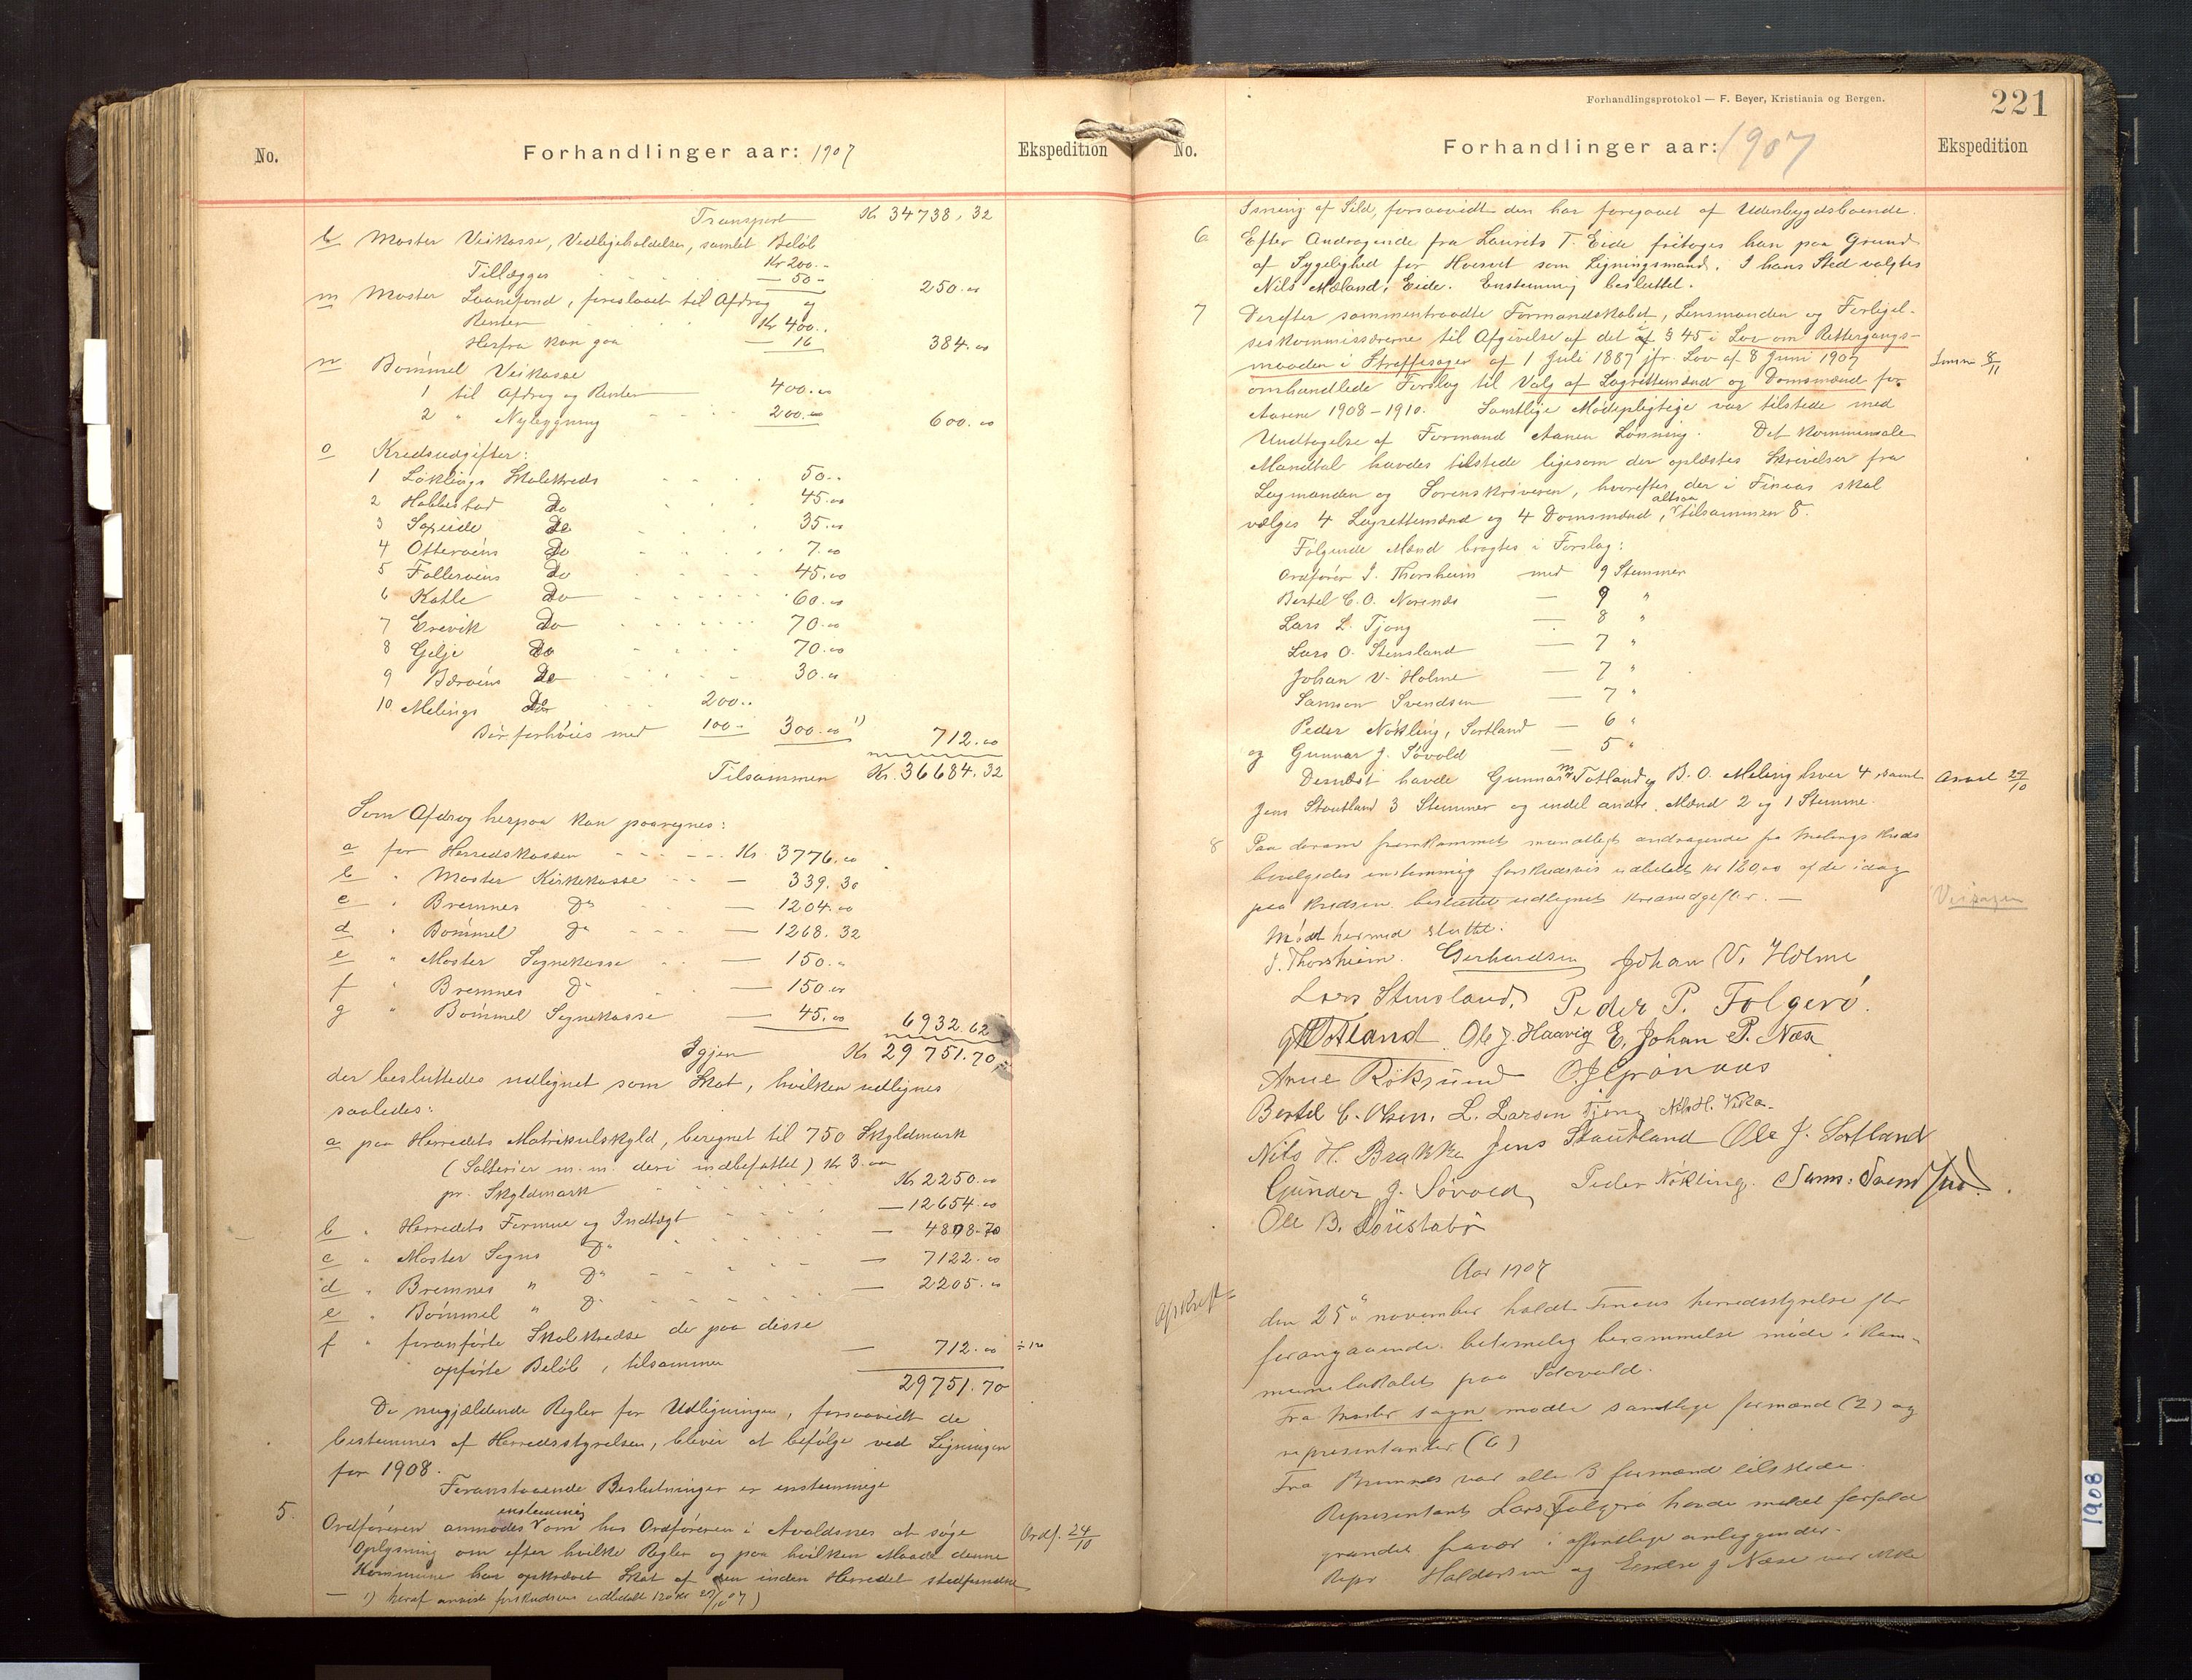 No.
Forhandlinger aar: 1907
Ekspedition
Transport Kr 34738,32
l Moster Veikasse, Vedligeholdelse, samlet Beløb
Kr 200.-
Tillægges - 50 - 250.00
m Moster Laanefond, foreslaaet til Afdrag og
Renter Kr 400..
Herfra kan gaa — 16 384.00
n Bømmel Veikasse
1 til Afdrag og Renter 400.00
2 " Nylægning 200.00 600.00
o Kredsudgifter:
1 Løklings Skolekreds 50..
2 Habbestad Do 45.00
3 Do 35.00
4 Otterøens Do 7.00
5 Follerøens Do 45.00
6 Katle Do 60.00
7 Grevik Do 70.00
8 Gilje Do 70.00
9 Børøens Do 30.00
10 Melings Do 200..
Bør forhøies med 100.- 300.00 1) 712.00
Tilsammen Kr. 36684.32
Som Afdrag herpaa kan paaregnes:
a for Herredskassen Kr. 3776.00
b " Moster Kirkekasse — 339.30
c " Bremnes Do — 1204.00
d " Bømmel Do — 1268.32
e " Moster Sognekasse — 150.-
f " Bremnes Do — 150.00
g " Bømmel Sognekasse — 45.00 6932.62
Igjen Kr 29 751.70
der besluttedes udlignet som Skat, hvilken udlignes
saaledes:
a paa Herredets Matrikulskyld, beregnet til 750 Skyldmark
(Salterier m.m. deri indbefattet) Kr 3.00
pr. Skyldmark Kr 2250.00
b " Herredets Formue og Indtægt — 12654.00
c " Moster Sogns Do — 4808.70
d " Bremnes " Do — 7122.00
e " Bømmel " Do — 2205.00
f " foranførte Skolekredse de paa disse
opførte Beløb, tilsammen — 712.00
29751.70
De nugjældende Regler for Udligningen, forsaavidt de
bestemmes af Herredsstyrelsen, bliver at befølge ved Ligningen
for 1908.
Foranstaaende Beslutninger er enstemmige
5. enstemmig
Ordføreren anmodes om hos Ordføreren i Avaldsnes at søge Ordf. 24/10
Oplysning om efter hvilke Regler og paa hvilken Maade denne
Kommune har opkrævet Skat af den inden Herredet stedfundne
— 1) heraf anvist forskudsvis udbetalt 120 kr 29/10 07)
Forhandlingsprotokol — F. Beyer, Kristiania og Bergen.
221
No.
Forhandlinger aar: 1907
Ekspedition
Isning af Sild, forsaavidt den har foregaaet af Udenbygdsboende.
6 Efter Andragende fra Laurits T. Eide fritages han paa Grund
af Sygelighed for Hvervet som Ligningsmand. I hans Sted valgtes
Nils Mæland, Eide. Enstemmig besluttet.
7 Derefter sammentraadte Formandskabet, Lensmanden og Forligel-
seskommissærerne til Afgivelse af det i § 45 i Lov om Rettergangs-
maaden i Straffesager af 1 Juli 1887 jfr. Lov af 8 Juni 1907
omhandlede Forslag til Valg af Lagrettemænd og Domsmænd for
Aarene 1908-1910. Samtlige Mødepligtige var tilstede med
Undtagelse af Formand Aanen Lønning. Det kommunale
Mandtal havdes tilstede ligesom der oplæstes Skrivelser fra
Lagmanden og Sorenskriveren, hvorefter der i Finaas skal
vælges 4 Lagrettemænd og 4 Domsmænd, altsaa tilsammen 8.
Følgende Mænd bragtes i Forslag:
Ordfører J. Thorsheim med 9 Stemmer
Bertel C. O. Norenes — 9 "
Lars L. Tjong — 8 "
Lars O. Stensland — 7 "
Johan V. Holme — 7 "
Samson Svendsen — 7 "
Peder Nøkling, Sortland — 6 "
og Gunnar J. Søvold — 5 "
Dernæst havde Gunnar M Totland og B. O. Meling hver 4, samt
Jens Stautland 3 Stemmer og endel andre Mænd 2 og 1 Stemme.
8 Paa derom fremkommet mundtligt andragende fra Melings Kreds
bevilgedes enstemmig forskudsvis udbetalt kr 120,00 af de idag
paa kredsen besluttet udlignet kredsudgifter. —
Mødet hermed sluttet.
J. Thorsheim. Gerhardsen Johan V. Holme
Lars Stensland, Peder P. Folgerø.
GMTotland. Ole J. Haavig E. Johan P. Næs
Arne Røksund O. J. Grønaas
Bertel C. Olsen, L. Larsen Tjong Nils H. Vika.
Nils H. Brakke Jens Stautland Ole J. Sortland
Gunder J. Søvold Peder Nøkling. Sams. Svendsen.
Ole B.
Aar 1907
den 25de november holdt Finaas herredsstyrelse efter
forangaaende betimelig berammelse møde i kom-
munelokalet paa Søvold.
Fra Moster sogn mødte samtlige formænd (2) og
repræsentanter (6)
Fra Bremnes var alle 3 formænd tilstede.
Repræsentant Lars Folgerø havde meldt forfald
grundet fravær i offentlige anliggender.
Repr Haldorsen og Endre J Næse var ikke
1908